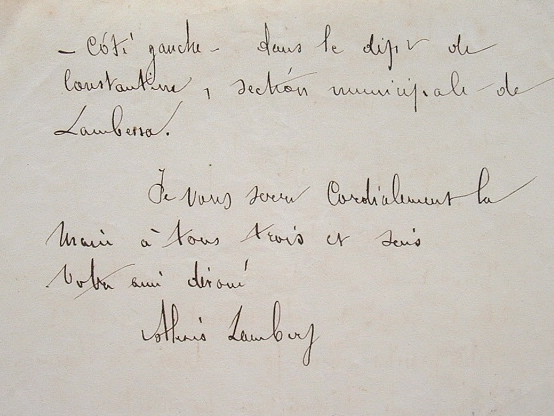 - Côté gauche - dans le dépt de
Constantine, section municipale de
Lambessa.
Je vous serre Cordialement la
main à tous trois et suis
Votre ami dévoué
Alexis Lambert